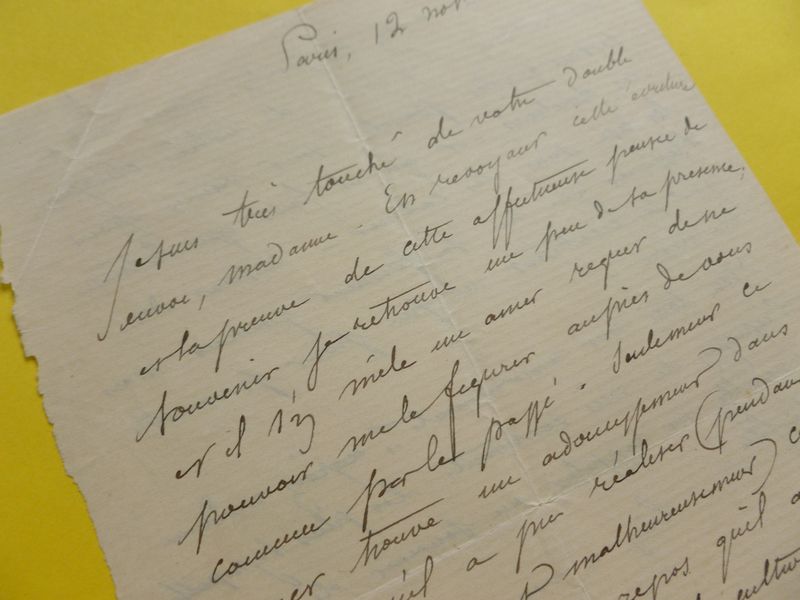 Paris, 12 nov
Je suis très touché de votre double
envoi, madame. En revoyant cette écriture
et la preuve de cette affectueuse pensée de
souvenir je retrouve un peu de sa présence,
et il s'y mêle un amer regret de ne
pouvoir me le figurer auprès de vous
comme par le passé. Seulement ce
trouve un adoucissement dans
qu'il a pu réaliser (pendant
malheureusement)
repos qu'il a
culture